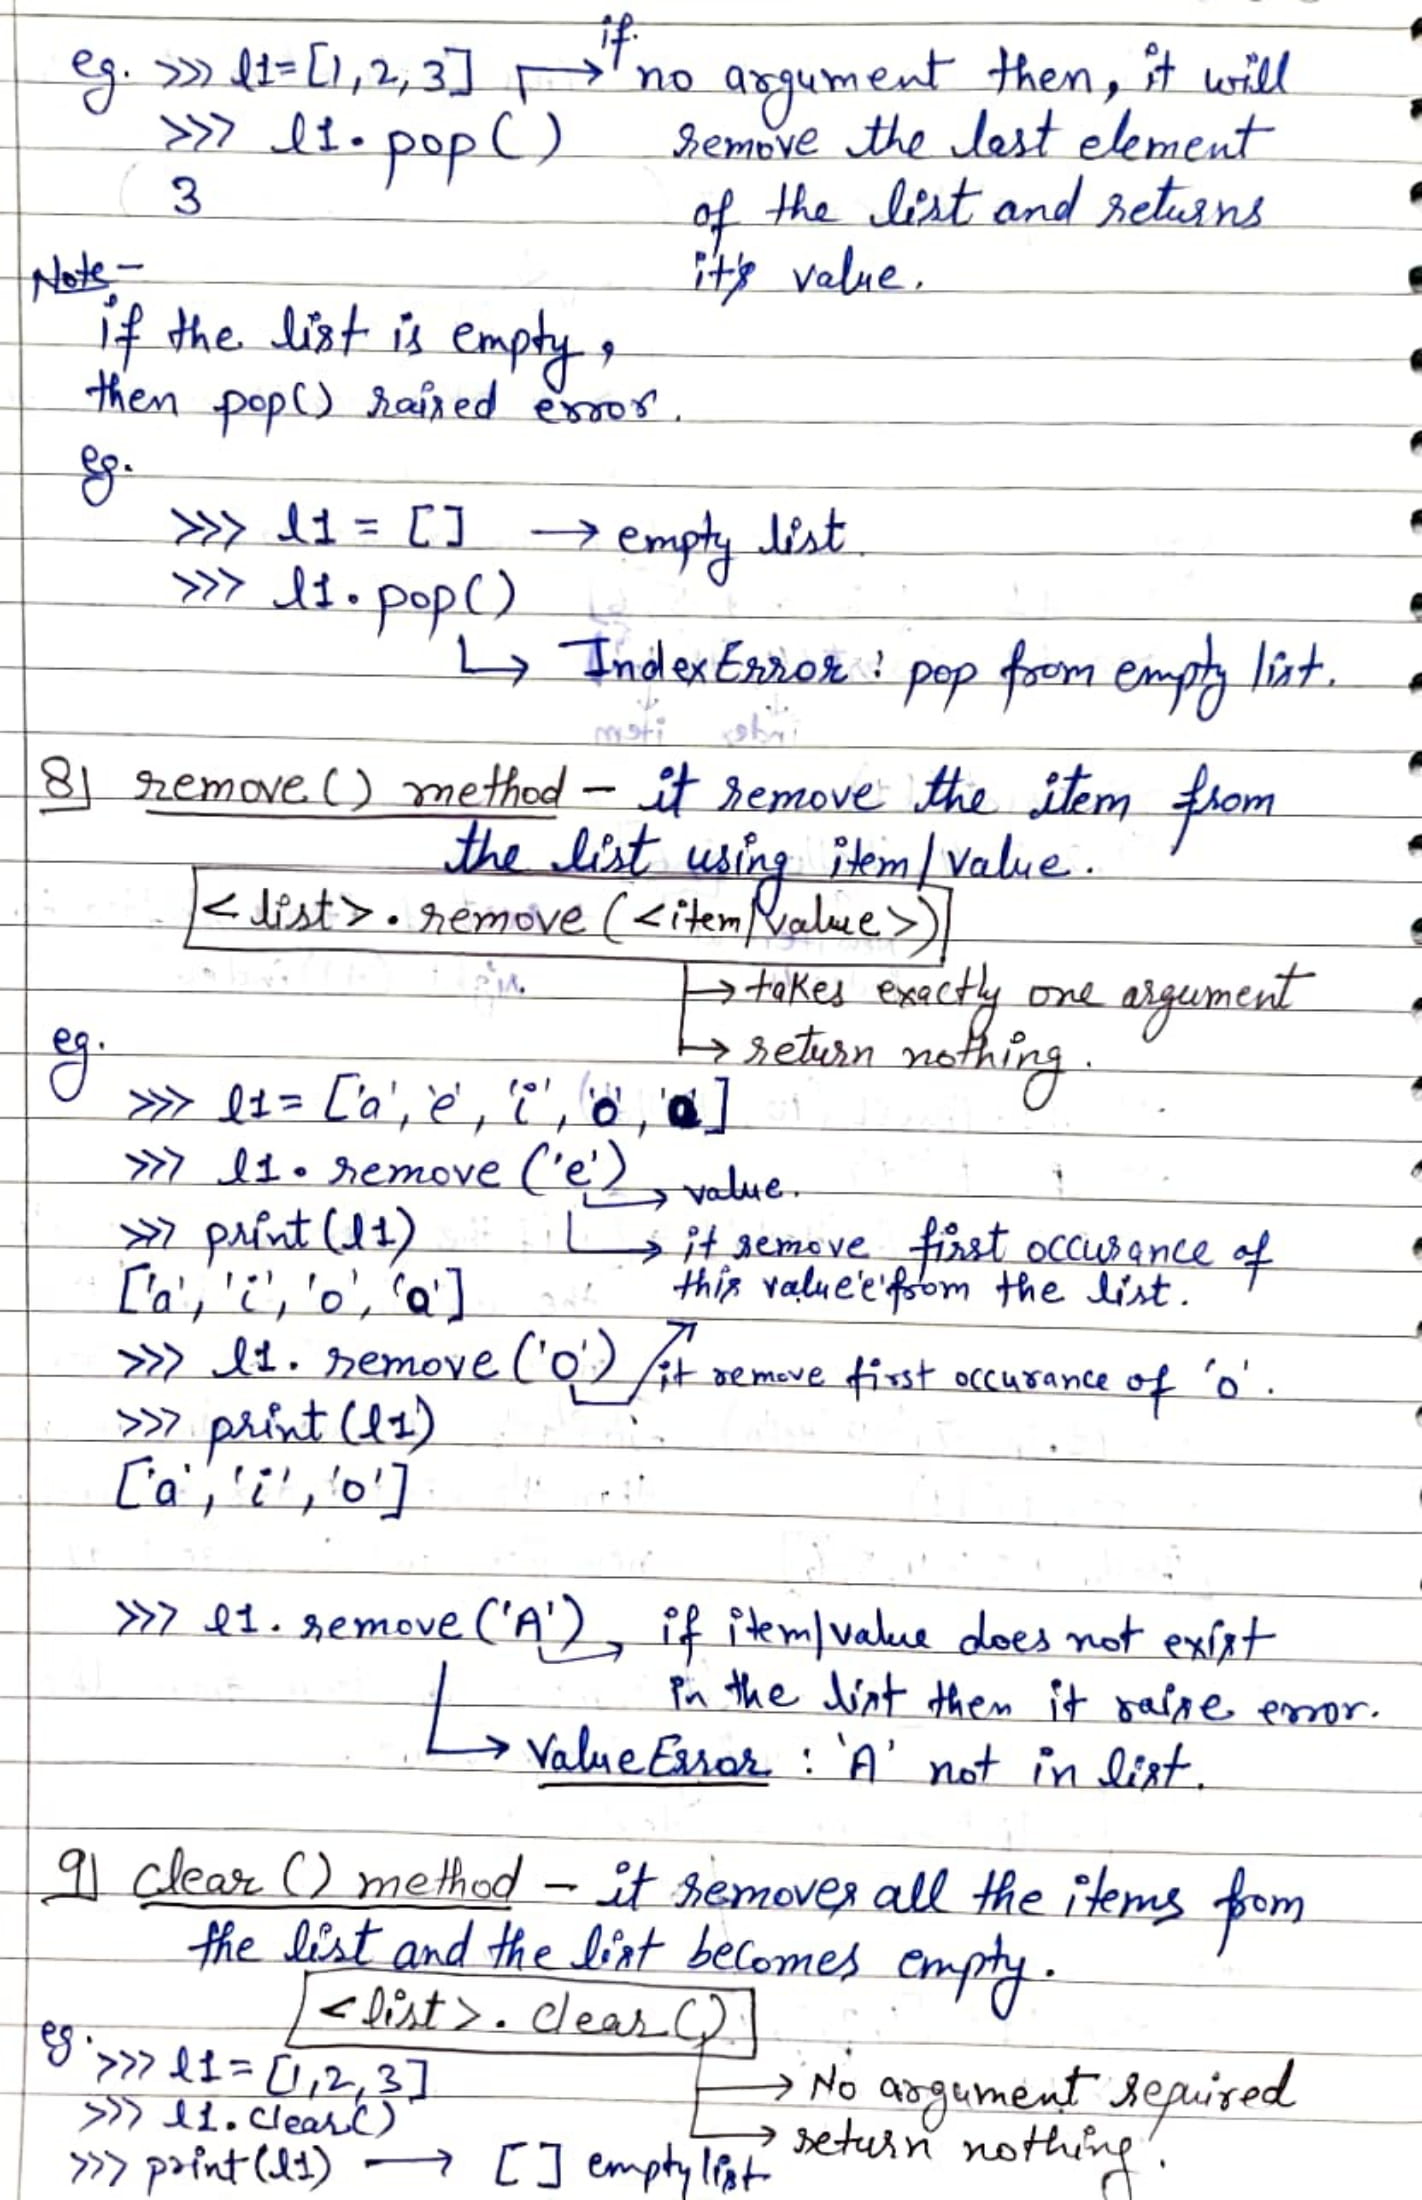 if
eg. >>> l1=[1,2,3] → no argument then, it will
>>> l1.pop() remove the last element
3 of the list and returns
it's value.
Note-
if the list is empty,
then pop() raised error.
eg.
>>> l1 = [] → empty list.
>>> l1.pop()
↳ IndexError : pop from empty list.
8] remove() method - it remove the item from
the list using item/value.
<list>.remove(<item/value>)
→ takes exactly one argument
→ return nothing.
eg.
>>> l1= ['a', 'e', 'i', 'o', 'o']
>>> l1.remove('e') → value.
>>> print(l1) → it remove first occurance of
['a', 'i', 'o', 'o'] this value 'e' from the list.
>>> l1.remove('o') it remove first occurance of 'o'.
>>> print(l1)
['a', 'i', 'o']
>>> l1.remove('A') → if item/value does not exist
in the list then it raise error.
→ ValueError : 'A' not in list.
9] clear() method - it removes all the items from
the list and the list becomes empty.
<list>.clear()
eg. >>> l1=[1,2,3]
→ No argument required
>>> l1.clear()
→ return nothing.
>>> print(l1) → [] empty list